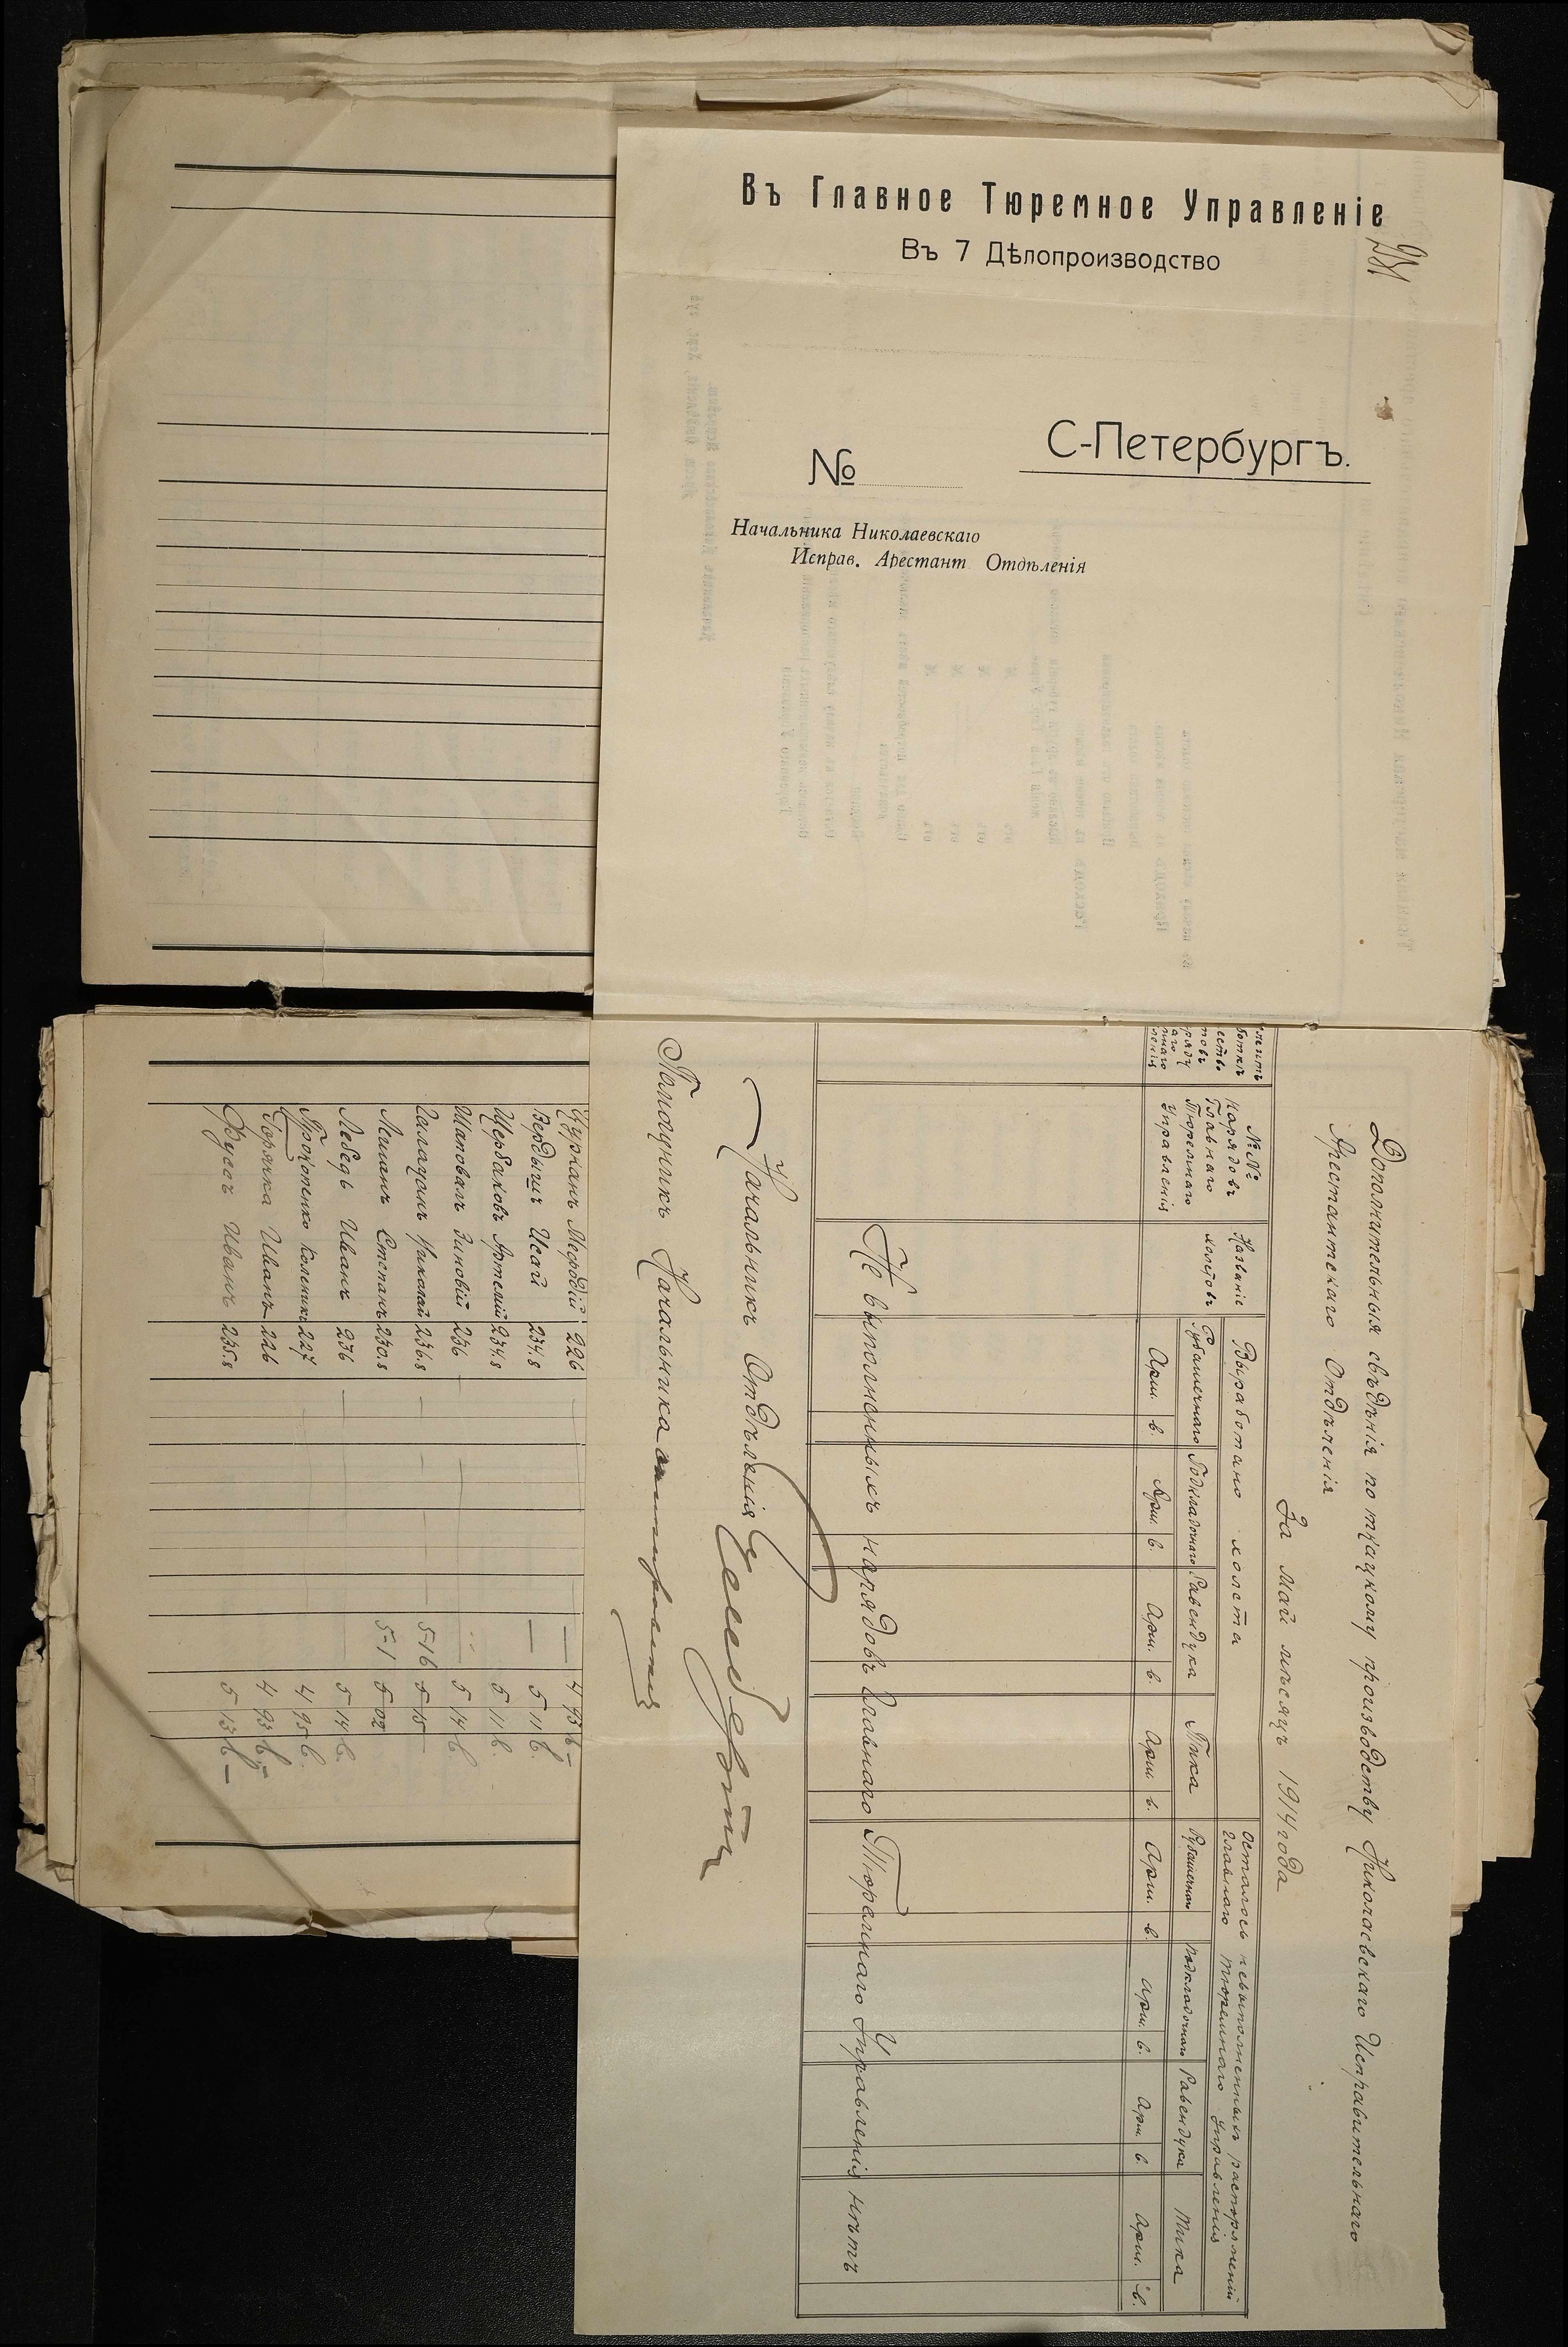 Въ Главное Тюремное Управленіе
Въ 7 Дѣлопроизводство
231
С-Петербургъ.
№
Начальника Николаевскаго
Исправ. Арестант Отдѣленія
Дополнительныя свѣдѣнія по ткацкому производству Николаевскаго Исправительнаго
Арестантскаго Отдѣленія
За май мѣсяцъ 1914 года
№№ нарядовъ Главнаго Тюремнаго Управленія
Названіе холстовъ
Выработано холста
Осталось невыполненныхъ распоряженій
Главнаго Тюремнаго Управленія
Рубашечнаго Подкладочнаго Равендука Тика Рубашечнаго Подкладочнаго Равендука Тика
Арш. в. Арш. в. Арш. в. Арш. в. Арш. в. Арш. в. Арш. в. Арш. в.
Не выполненныхъ нарядовъ Главнаго Тюремнаго Управленія нѣтъ
Начальникъ Отдѣленія
Помощникъ Начальника
Мефодій 226 — 4 93
Бердышъ Исай 234.8 — 5 11
Щербаковъ Артемій 234.8 5 11
Шаповалъ Зиновій 236 5 14
Николай 236.8 5-16 5 15
Степанъ 230.8 5-1 5 02
Лебедь Иванъ 236 5 14
Прокопенко 227 4 95
Горянка Иванъ 226 4 93
Иванъ 235.8 5 13